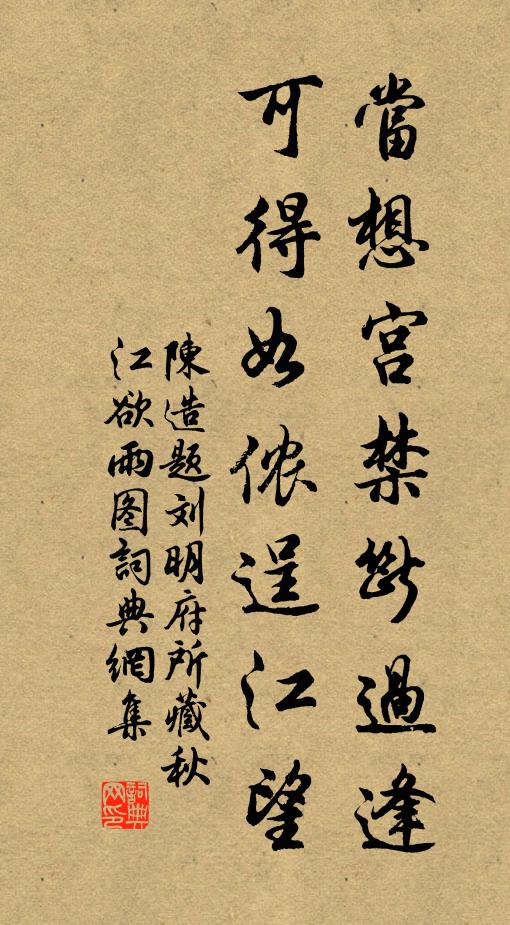 當想宫禁斷過逢
可得如侬逞江望
陳造題刘明府所藏秋
江欲雨图詞典網集
詞典
网印